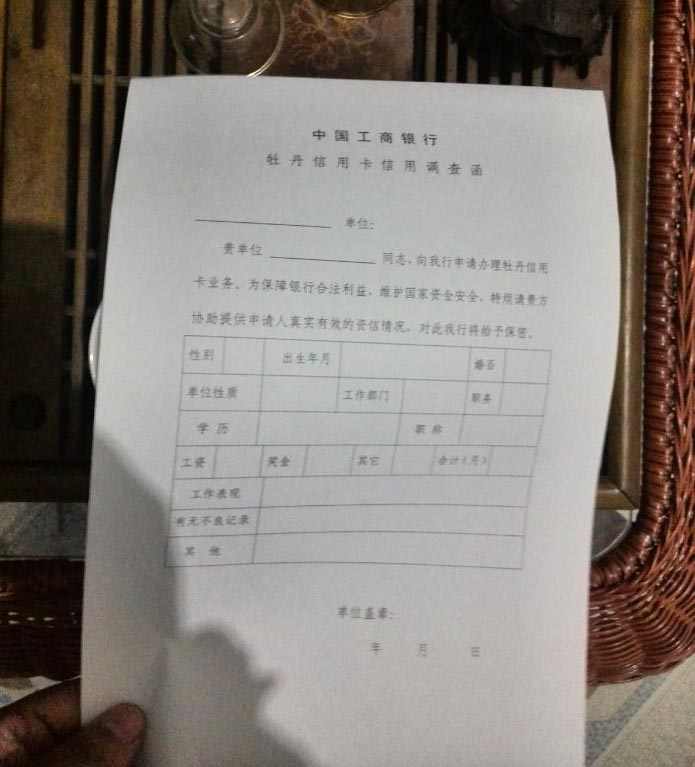 中国工商银行
牡丹信用卡信用调查函
单位：
贵单位 同志，向我行申请办理牡丹信用
卡业务。为保障银行合法利益，维护国家资金安全，特烦请贵方
协助提供申请人真实有效的资信情况。对此我行将给予保密。
性别 出生年月 婚否
单位性质 工作部门 职务
学历 职称
工资 奖金 其它 合计（月）
工作表现
有无不良记录
其他
单位盖章：
年 月 日